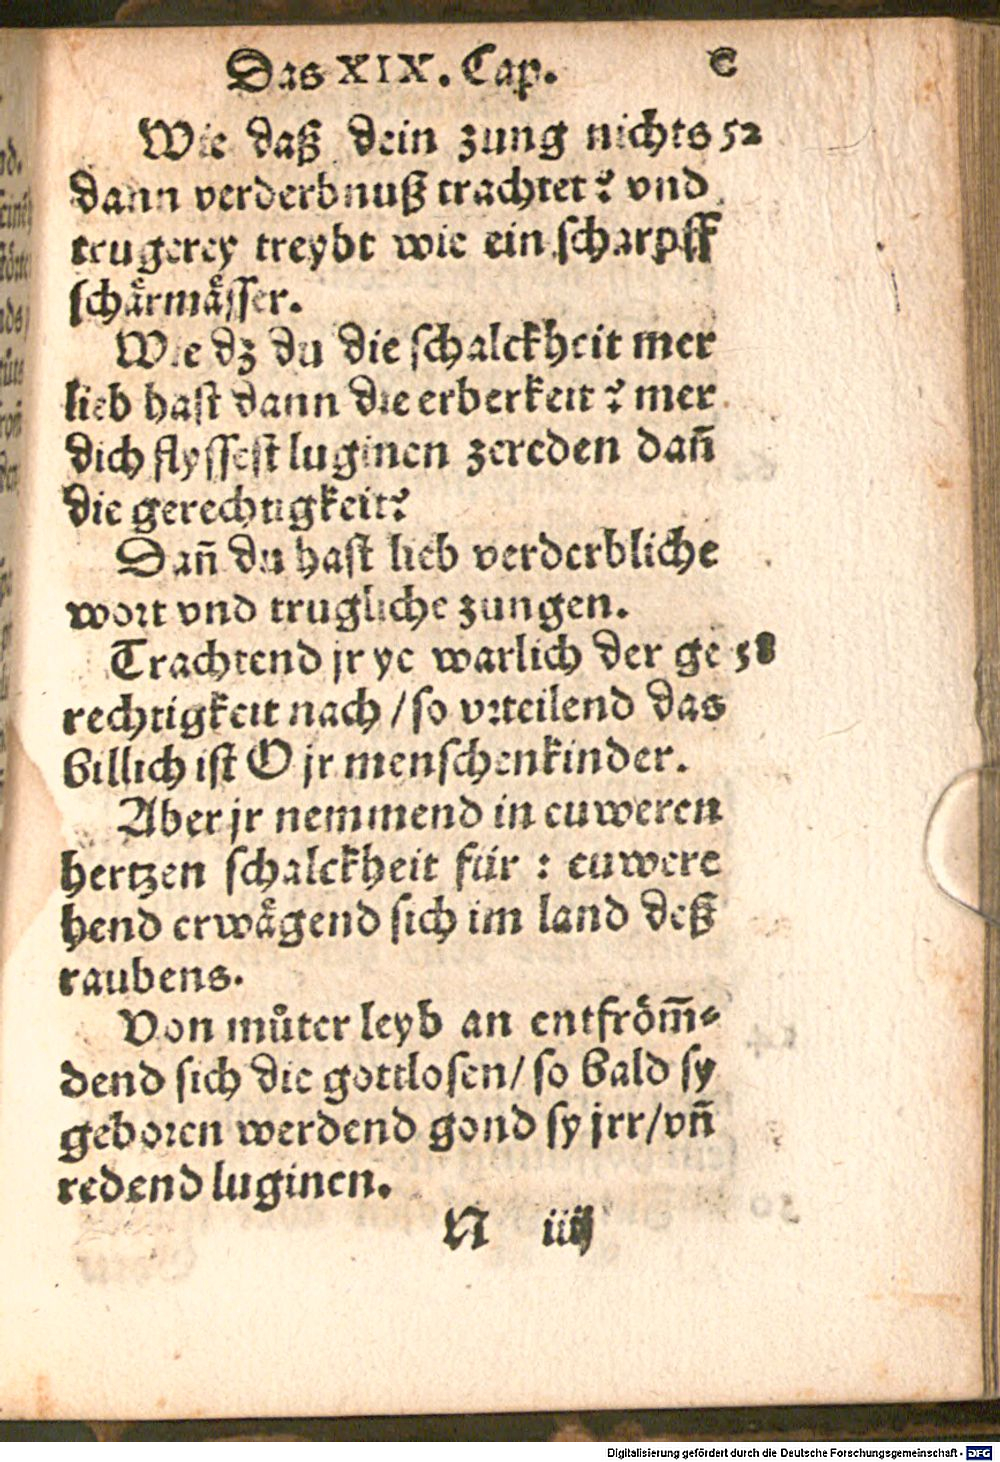 Das XIX. Cap. C
Wie daß dein zung nichts 52
dann verderbnuß trachtet? vnd
trugerey treybt wie ein scharpff
schärmässer.
Wie dz du die schalckheit mer
lieb hast dann die erberkeit? mer
dich flyssest luginen zereden dañ
die gerechtigkeit?
Dañ du hast lieb verderbliche
wort vnd trugliche zungen.
Trachtend jr ye warlich der ge 58
rechtigkeit nach / so vrteilend das
billich ist O jr menschenkinder.
Aber jr nemmend in euweren
hertzen schalckheit für : euwere
hend erwägend sich im land deß
raubens.
Von můter leyb an entfröm̃⸗
dend sich die gottlosen / so bald sy
geboren werdend gond sy jrr / vñ
redend luginen.
N iiij
Digitalisierung gefördert durch die Deutsche Forschungsgemeinschaft - DFG